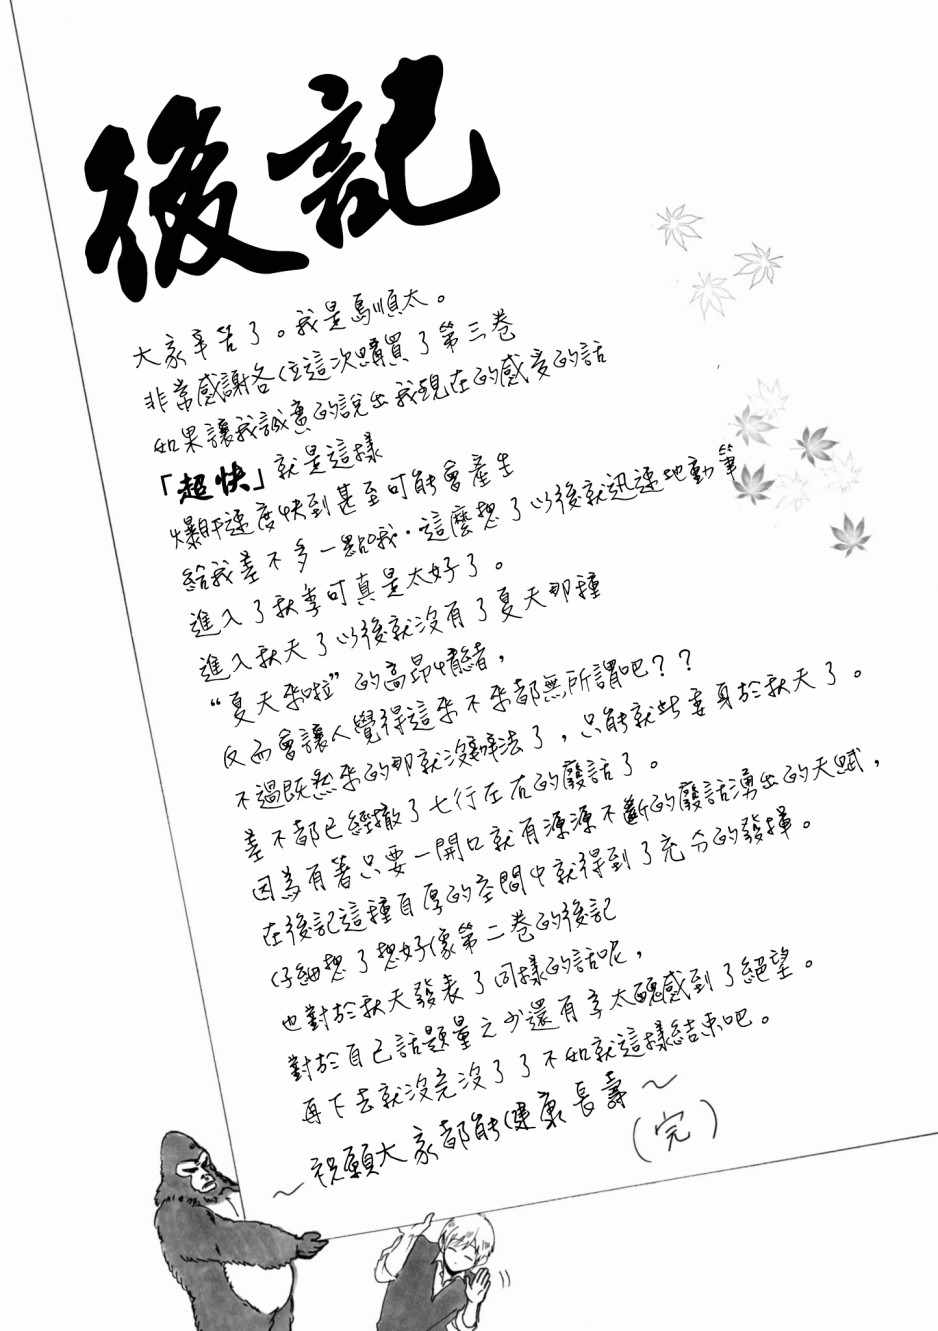 後記
大家辛苦了。我是馬順太。
非常感謝各位這次購買了第三卷
如果讓我誠實的說出我現在的感受的話
「超快」就是這樣
爆肝速度快到甚至可能會產生
給我差不多一點哦·這麼想了以後就迅速地動筆
進入了秋季可真是太好了。
進入秋天了以後就沒有了夏天那種
“夏天來啦”的高昂情緒，
反而會讓人覺得這來不來都無所謂吧？？
不過既然來的那就沒辦法了，只能就此委身於秋天了。
差不都已經撤了七行左右的廢話了。
因為有著只要一開口就有源源不斷的廢話湧出的天賦，
在後記這種自厚的空間中就得到了充分的發揮。
仔細想了想好像第二卷的後記
也對於秋天發表了同樣的話呢，
對於自己話題量之少還有字太醜感到了絕望。
再下去就沒完沒了了不如就這樣結束吧。
～祝願大家都能健康長壽～
(完)